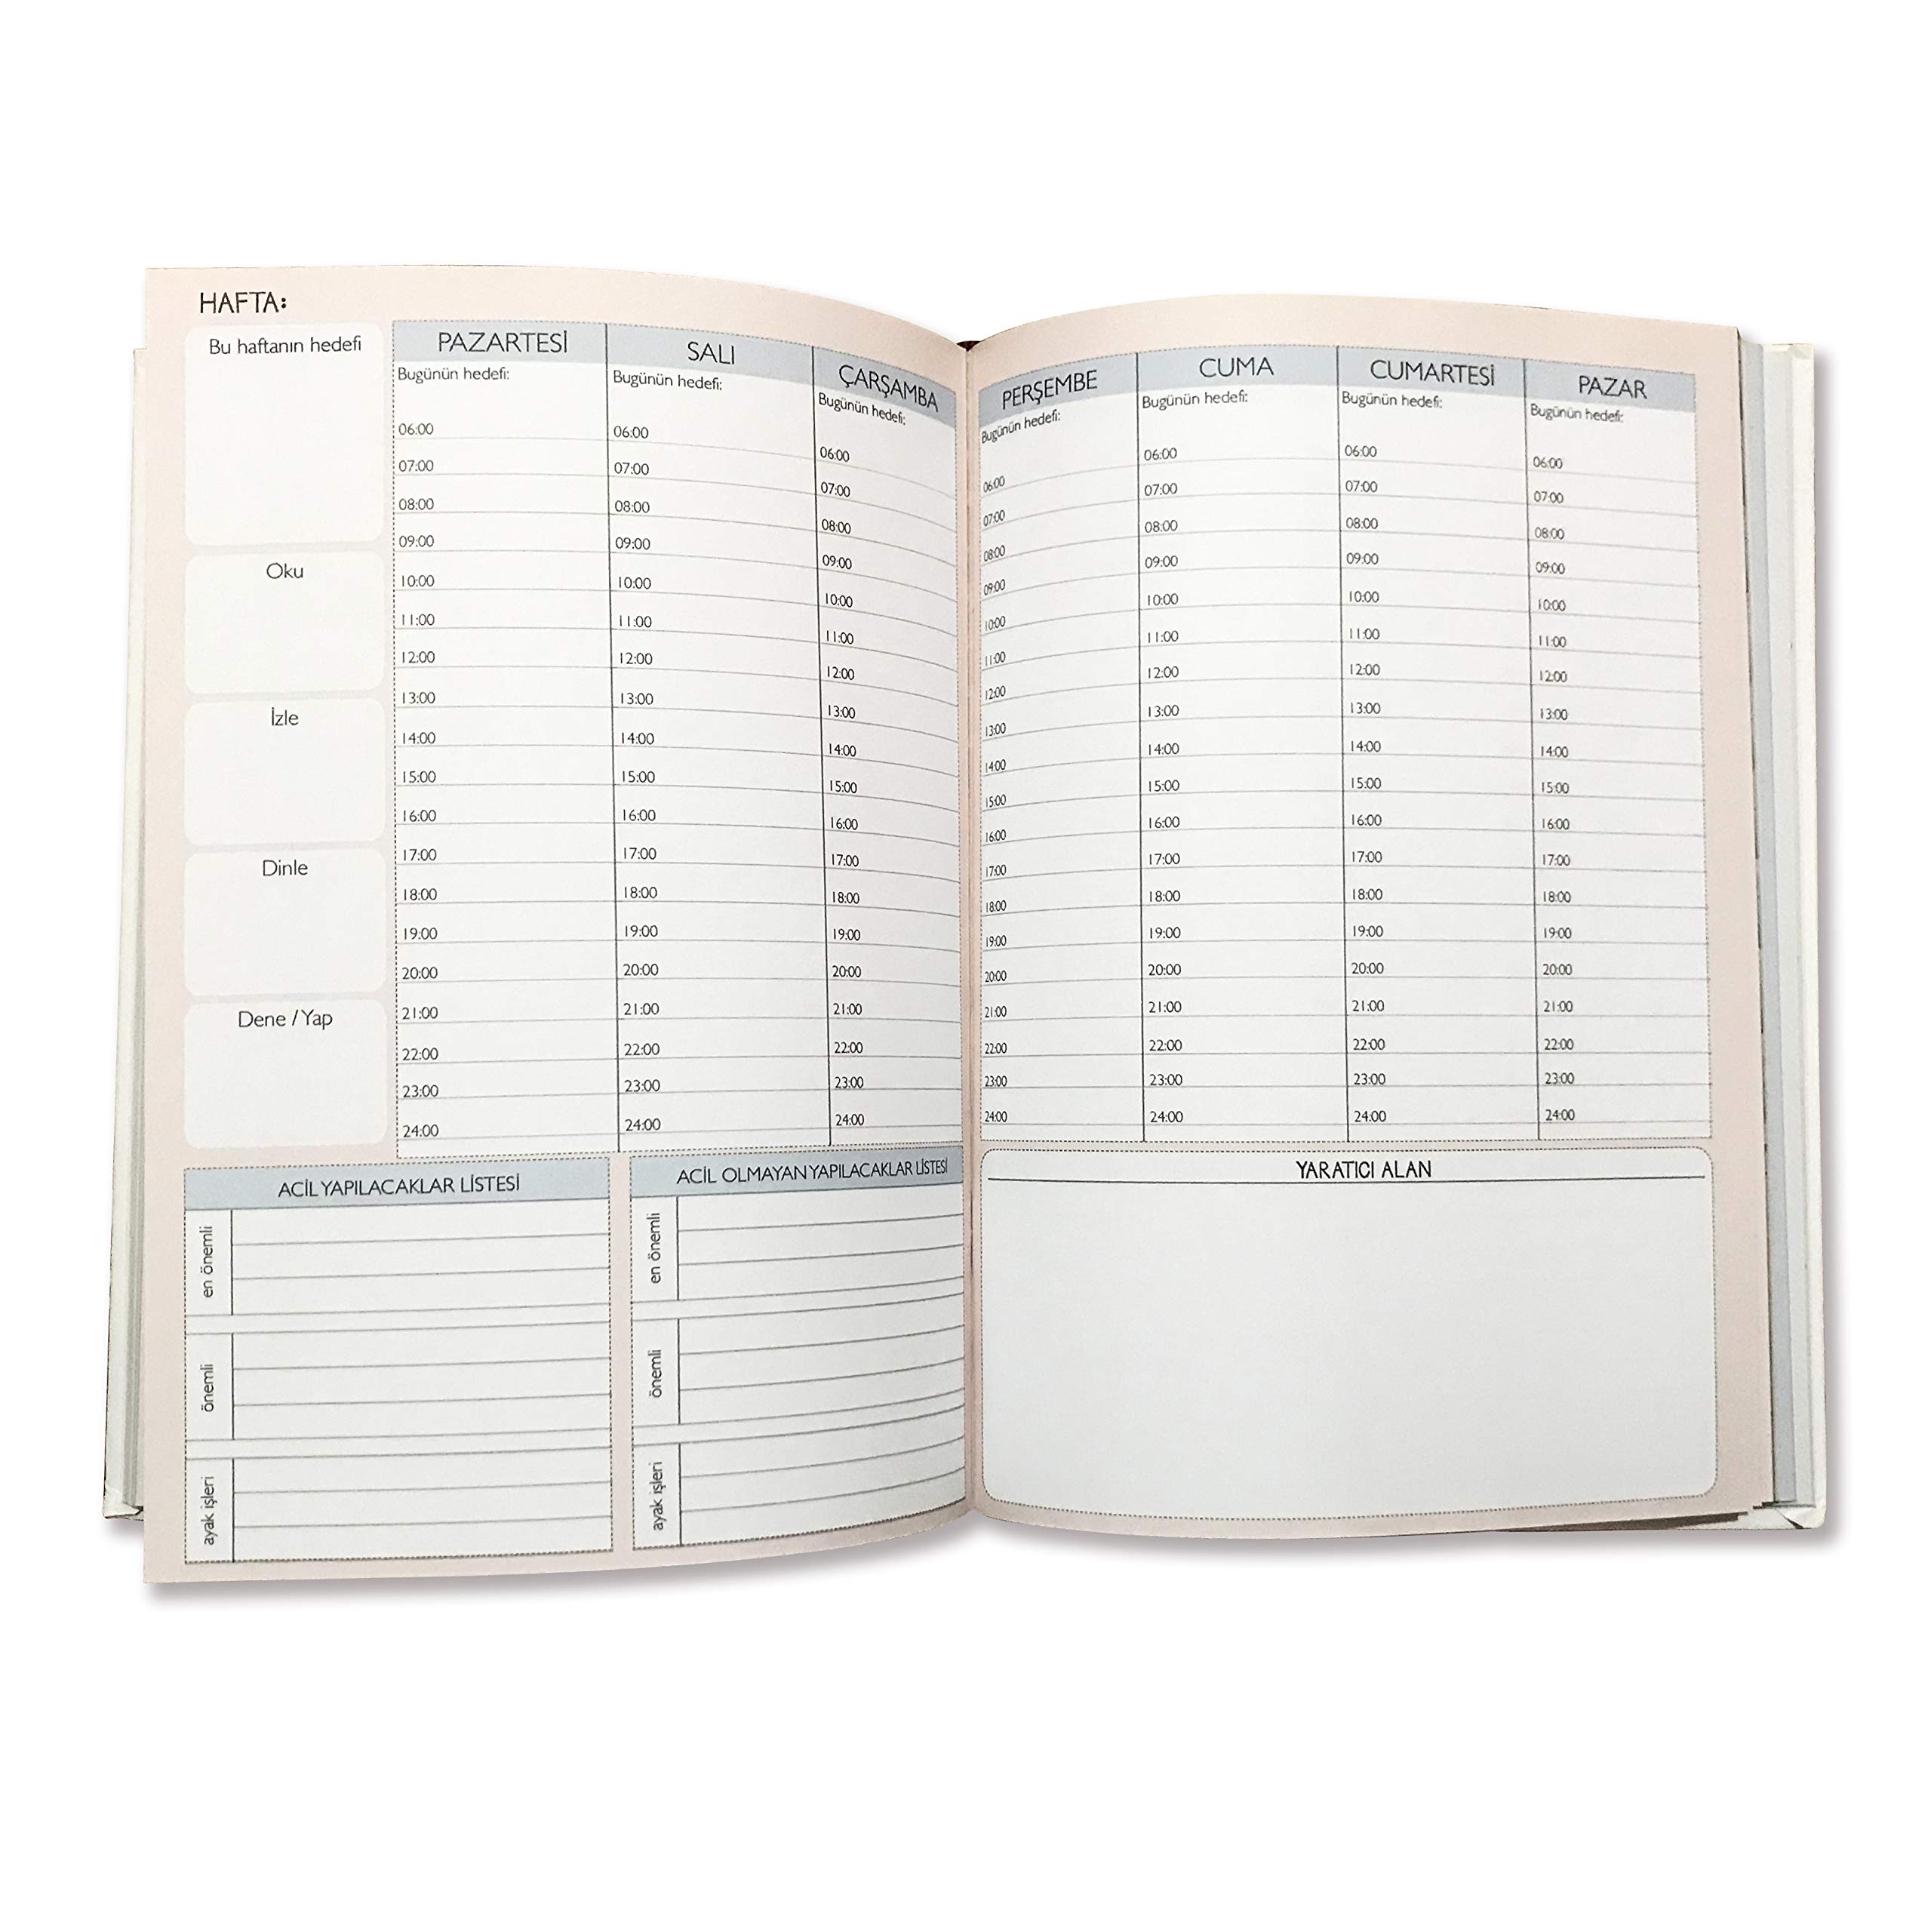 HAFTA:
Bu haftanın hedefi
Oku
İzle
Dinle
Dene / Yap
PAZARTESİ
Bugünün hedefi:
06:00
07:00
08:00
09:00
10:00
11:00
12:00
13:00
14:00
15:00
16:00
17:00
18:00
19:00
20:00
21:00
22:00
23:00
24:00
SALI
Bugünün hedefi:
06:00
07:00
08:00
09:00
10:00
11:00
12:00
13:00
14:00
15:00
16:00
17:00
18:00
19:00
20:00
21:00
22:00
23:00
24:00
ÇARŞAMBA
Bugünün hedefi:
06:00
07:00
08:00
09:00
10:00
11:00
12:00
13:00
14:00
15:00
16:00
17:00
18:00
19:00
20:00
21:00
22:00
23:00
24:00
ACİL YAPILACAKLAR LİSTESİ
en önemli
önemli
ayak işleri
ACİL OLMAYAN YAPILACAKLAR LİSTESİ
en önemli
önemli
ayak işleri
PERŞEMBE
Bugünün hedefi:
06:00
07:00
08:00
09:00
10:00
11:00
12:00
13:00
14:00
15:00
16:00
17:00
18:00
19:00
20:00
21:00
22:00
23:00
24:00
CUMA
Bugünün hedefi:
06:00
07:00
08:00
09:00
10:00
11:00
12:00
13:00
14:00
15:00
16:00
17:00
18:00
19:00
20:00
21:00
22:00
23:00
24:00
CUMARTESİ
Bugünün hedefi:
06:00
07:00
08:00
09:00
10:00
11:00
12:00
13:00
14:00
15:00
16:00
17:00
18:00
19:00
20:00
21:00
22:00
23:00
24:00
PAZAR
Bugünün hedefi:
06:00
07:00
08:00
09:00
10:00
11:00
12:00
13:00
14:00
15:00
16:00
17:00
18:00
19:00
20:00
21:00
22:00
23:00
24:00
YARATICI ALAN